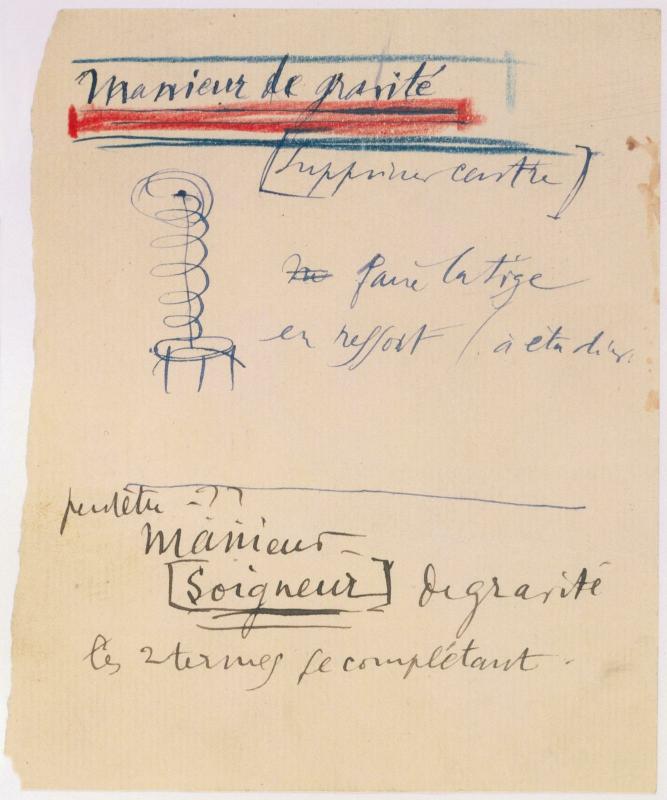 Manieur de gravité
[Supprimer centre]
faire la tige
en ressort (à étudier.
peut être -??
Manieur-
[Soigneur] de gravité
les 2 termes se complétant.